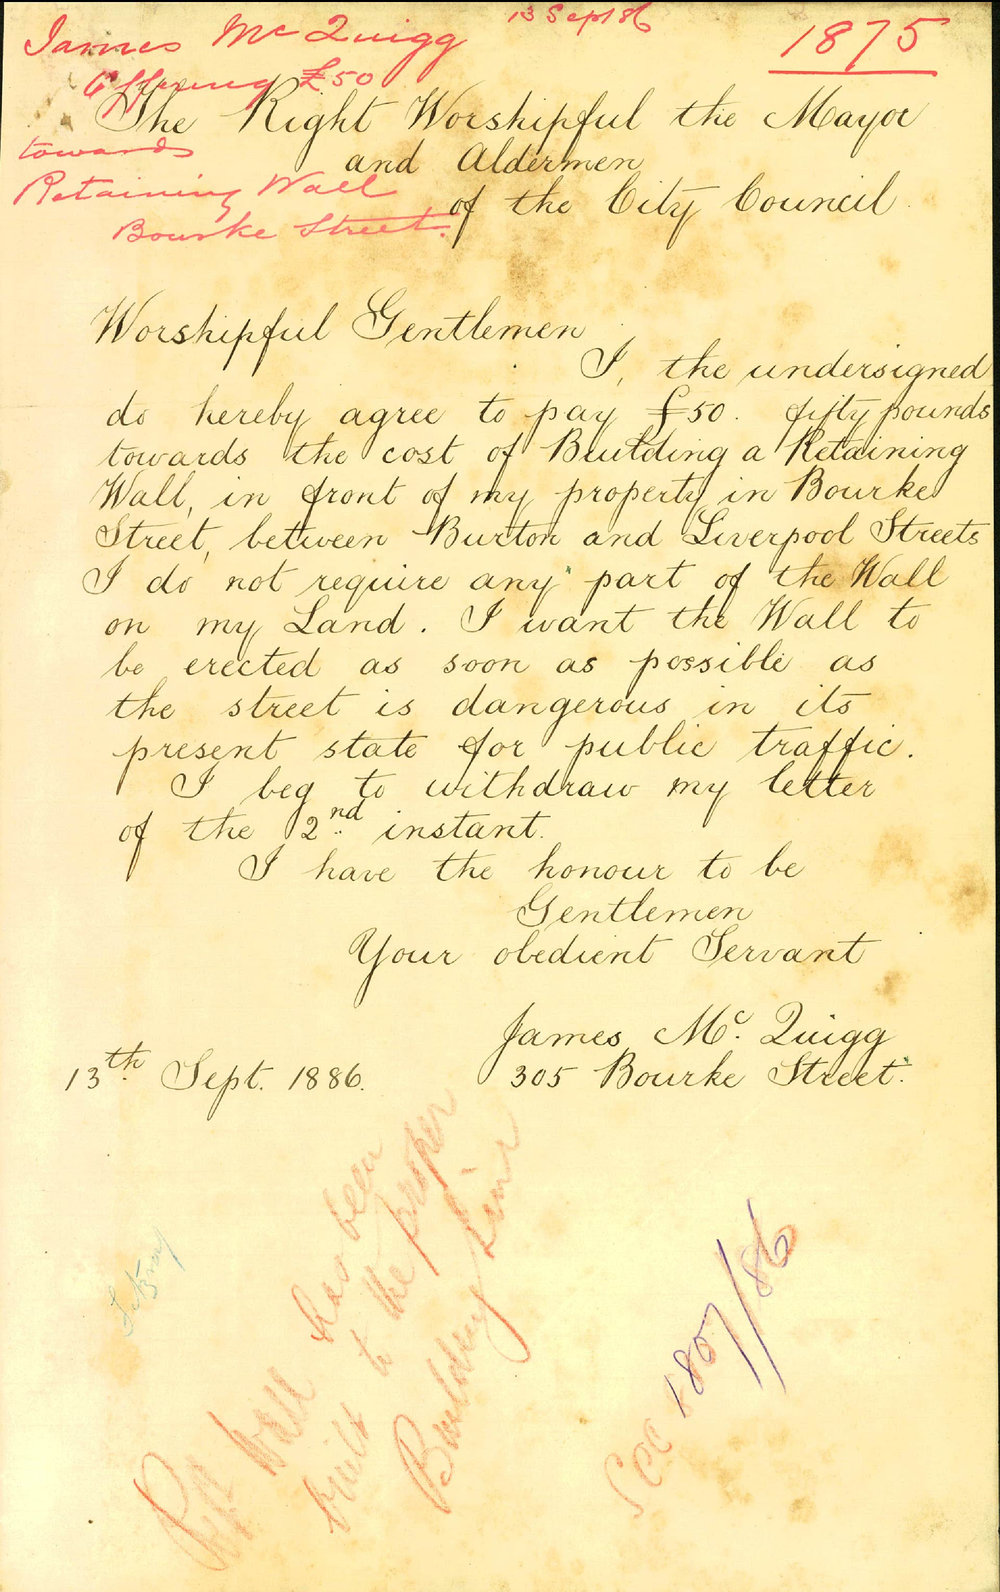 13 Sept 86
1875
James McQuigg
Offering £50
towards
Retaining Wall
Bourke Street.
The Right Worshipful the Mayor
and Aldermen
of the City Council
Worshipful Gentlemen
I, the undersigned
do hereby agree to pay £50. fifty pounds
towards the cost of Building a Retaining
Wall, in front of my property in Bourke
Street, between Burton and Liverpool Streets
I do not require any part of the Wall
on my Land. I want the Wall to
be erected as soon as possible as
the street is dangerous in its
present state for public traffic.
I beg to withdraw my letter
of the 2nd instant.
I have the honour to be
Gentlemen
Your obedient Servant
James Mc. Quigg
13th Sept. 1886.
305 Bourke Street.
Wall has been
built to the proper
Building Line
See 1807/86